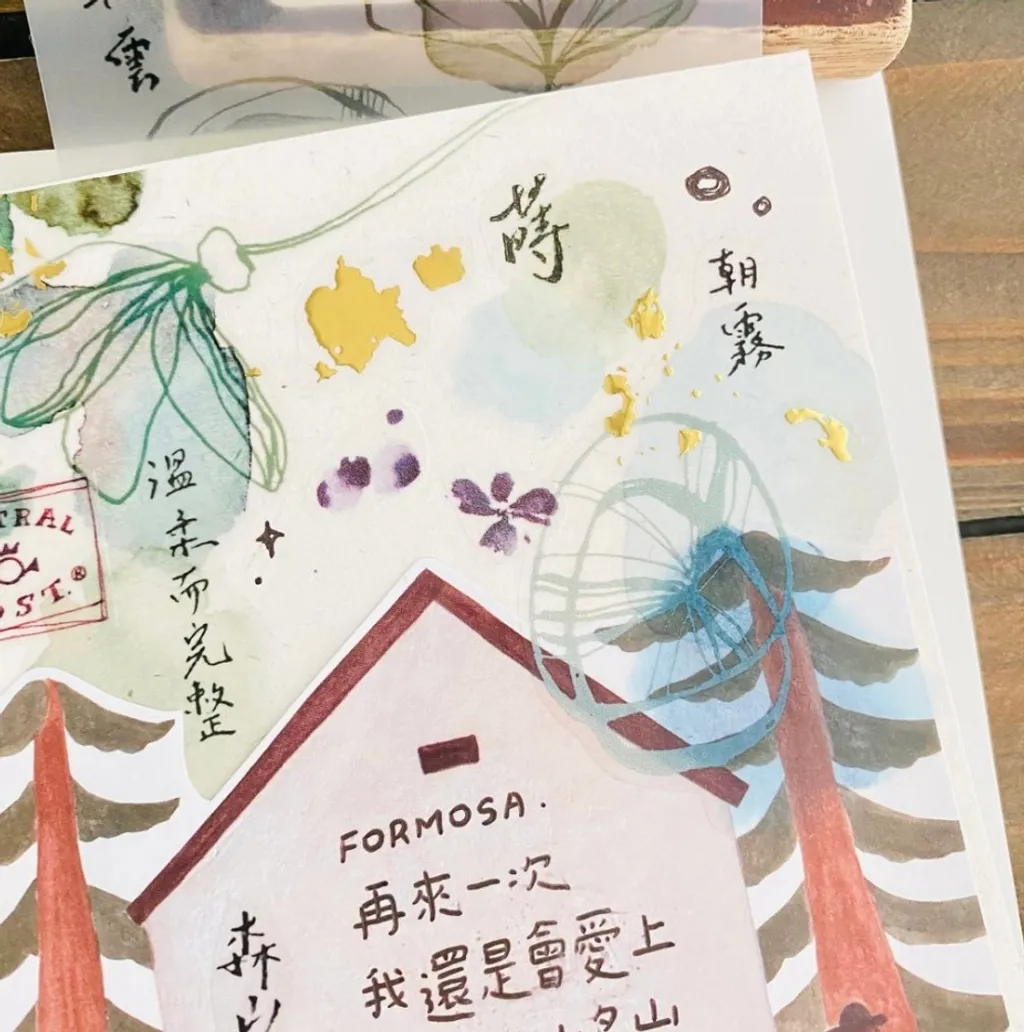 雲
蒔
朝霧
溫柔而完整
TRAL
OST.®
FORMOSA.
再來一次
我還是會愛上
山
森